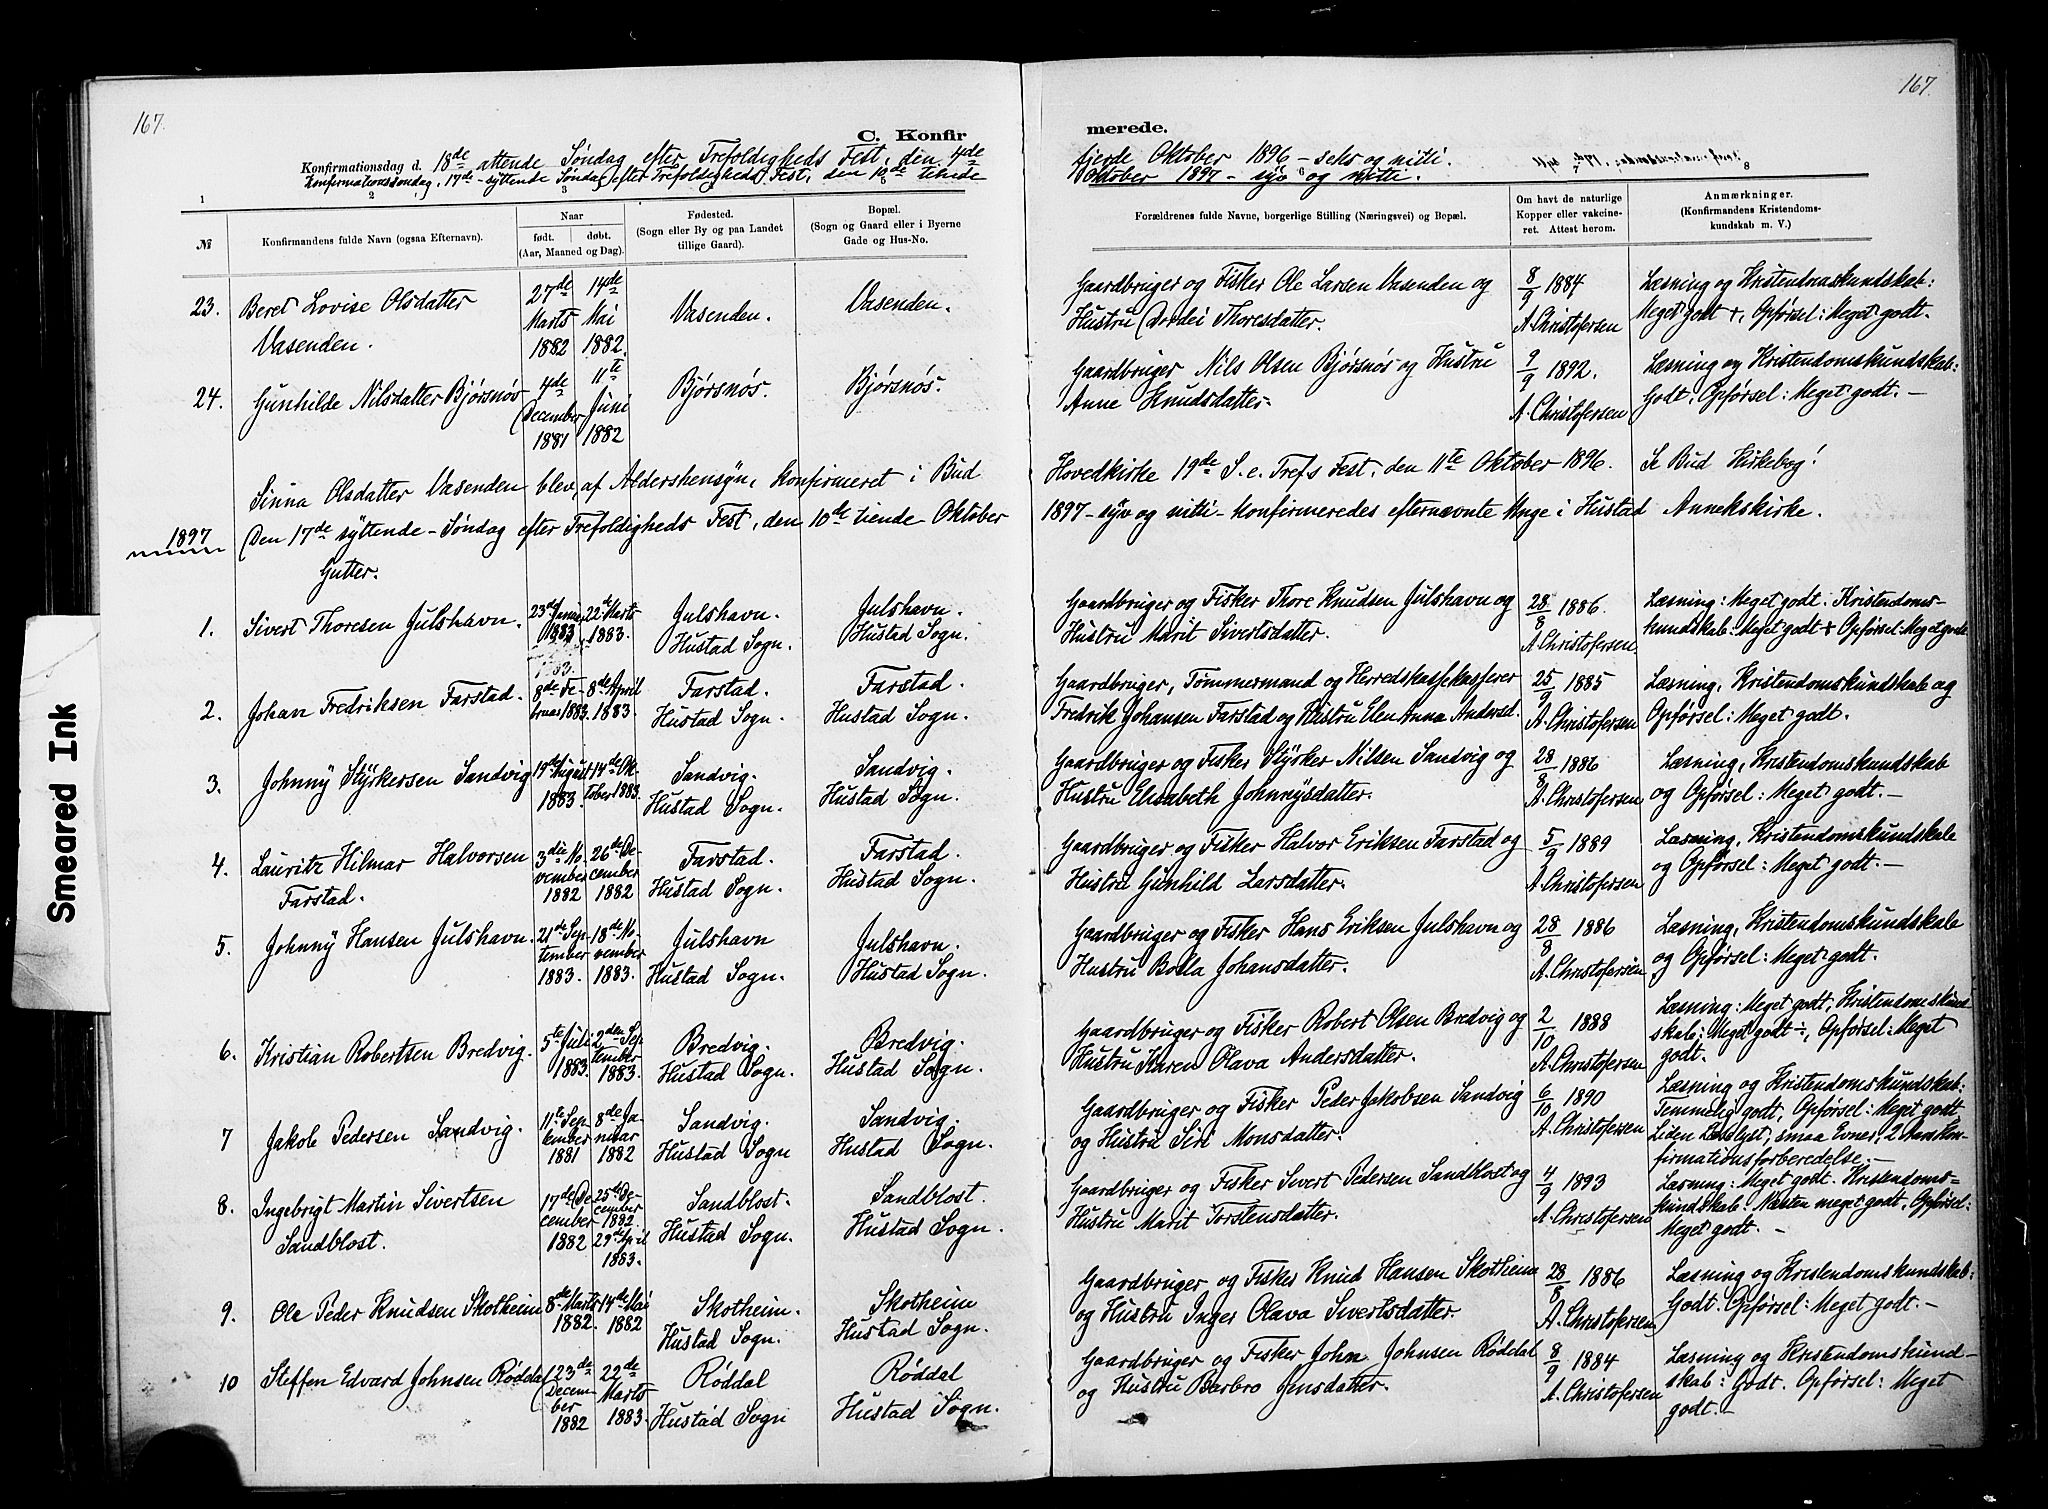 167.
C. Konfir
Konfirmationsdag d. 18de attende Søndag efter Trefoldigheds Fest, den 4de
Konfirmationssøndag, 17de - syttende Søndag efter Trefoldigheds Fest, den 10de tiende
1 2 3 4 5
№
Konfirmandens fulde Navn (ogsaa Efternavn).
Naar
født. døbt.
(Aar, Maaned og Dag).
Fødested.
(Sogn eller By og paa Landet
tillige Gaard).
Bopæl.
(Sogn og Gaard eller i Byerne
Gade og Hus-No.
23. Beret Lovise Olsdatter
Vasenden.
27de
Marts
1882
14de
Mai
1882.
Vasenden.
Vasenden.
24. Gunhilde Nilsdatter Bjørsnøs
4de
December
1881
11te
Juni
1882
Bjørsnøs.
Bjørsnøs.
Sinna Olsdatter Vasenden blev, af Aldershensyn, konfirmeret i Bud
1897 Den 17de syttende - Søndag efter Trefoldigheds Fest, den 10de tiende Oktober
Gutter.
1. Sivert Thoresen Julshavn.
1883
22de Marts
1883.
Julshavn.
Hustad Sogn.
Julshavn.
Hustad Sogn.
2. Johan Fredriksen Farstad.
8de Fe-
bruar 1883.
8de April
1883.
Farstad.
Hustad Sogn.
Farstad.
Hustad Sogn.
3. Johnny Styrkersen Sandvig
19de August
1883.
14de Ok-
tober 1883.
Sandvig.
Hustad Sogn.
Sandvig.
Hustad Sogn.
4. Lauritz Hilmar Halvorsen
Farstad.
3die No-
vember
1882
26de De-
cember
1882
Farstad.
Hustad Sogn.
Farstad.
Hustad Sogn.
5. Johnny Hansen Julshavn.
21de Sep-
tember
1883.
18de No-
vember
1883.
Julshavn
Hustad Sogn.
Julshavn.
Hustad Sogn.
6. Kristian Robertsen Bredvig.
5te Juli
1883.
2den Sep
tember
1883.
Bredvig.
Hustad Sogn.
Bredvig.
Hustad Sogn.
7 Jakob Pedersen Sandvig.
11te Sep
tember
1881
8de Ja-
nuar
1882
Sandvig.
Hustad Sogn
Sandvig.
Hustad Sogn.
8. Ingebrigt Martin Sivertsen
Sandblost.
17de De
cember
1882
25de De-
cember
1882.
29de April
1883.
Sandblost.
Hustad Sogn.
Sandblost.
Hustad Sogn.
9. Ole Peder Knudsen Skotheim
8de Marts
1882.
14de Mai
1882
Skotheim.
Hustad Sogn.
Skotheim
Hustad Sogn.
10 Steffen Edvard Johnsen Røddal
23de
Decem-
ber
1882
22de
Marts
1883.
Røddal
Hustad Sogn
Røddal
Hustad Sogn.
Smeared Ink
167.
merede.
fjerde Oktober 1896 - seks og nitti.
Oktober 1897 - syv og nitti.
6 7 8
Forældrenes fulde Navne, borgerlige Stilling (Næringsvei) og Bopæl.
Om havt de naturlige
Kopper eller vakcine-
ret. Attest herom.
Anmærkninger.
(Konfirmandens Kristendoms-
kundskab m. V.)
Gaardbruger og Fisker Ole Larsen Vasenden og
Hustru Dordei Thoresdatter.
8/9 1884
A. Christofersen
Læsning og Kristendomskundskab:
Meget godt +, Opførsel: Meget godt.
Gaardbruger Nils Olsen Bjørsnøs og Hustru
Anne Knudsdatter.
9/9 1892.
A. Christofersen
Læsning og Kristendomskundskab:
Godt, Opførsel: Meget godt. -
Hovedkirke 19de S. e. Trefs Fest, den 11te Oktober 1896. Se Bud Kirkebog!
1897 - syv og nitti - konfirmeredes efternævnte Unge i Hustad Annekskirke.
Gaardbruger og Fisker Thore Knudsen Julshavn og
Hustru Marit Sivertsdatter.
28/8 1886.
A. Christofersen
Læsning: Meget godt. Kristendoms-
kundskab: Meget godt + Opførsel: Meget godt
Gaardbruger, Tømmermand og Herredskassekasserer
Fredrik Johansen Farstad og Hustru Elen Anna Andersd.
25/9 1885
A. Christofersen
Læsning, Kristendomskundskab og
Opførsel: Meget godt.
Gaardbruger og Fisker Styrker Nilsen Sandvig og
Hustru Elisabeth Johnnysdatter.
28/8 1886
A. Christofersen
Læsning, Kristendomskundskab
og Opførsel: Meget godt. -
Gaardbruger og Fisker Halvor Eriksen Farstad og
Hustru Gunhild Larsdatter.
5/9 1889
A. Christofersen
Læsning, Kristendomskundskab
og Opførsel: Meget godt. -
Gaardbruger og Fisker Hans Eriksen Julshavn og
Hustru Bolla Johansdatter.
28/8 1886
A. Christofersen
Læsning, Kristendomskundskab
og Opførsel: Meget godt.
Gaardbruger og Fisker Robert Olsen Bredvig og
Hustru Karen Olava Andersdatter.
2/10 1888
A. Christofersen
Læsning: Meget godt, Kristendomskund-
skab: Meget godt ÷, Opførsel: Meget
godt.
Gaardbruger og Fisker Peder Jakobsen Sandvig
og Hustru Siri Monsdatter.
6/10 1890
A. Christofersen
Læsning og Kristendomskundskab:
Temmelig godt, Opførsel: Meget godt
Liden Læselyst, smaa Evner, 2 Aars Kon-
firmationsforberedelse. -
Gaardbruger og Fisker Sivert Pedersen Sandblost og
Hustru Marit Torstensdatter.
4/9 1893
A. Christofersen
Læsning: Meget godt. Kristendoms-
kundskab: Næsten meget godt. Opførsel:
Meget godt. -
Gaardbruger og Fisker Knud Hansen Skotheim
og Hustru Inger Olava Sivertsdatter.
28/8 1886
A. Christofersen
Læsning og Kristendomskundskab:
Godt. Opførsel: Meget godt. -
Gaardbruger og Fisker John Johnsen Røddal
og Hustru Barbro Jensdatter.
8/9 1884
A. Christofersen
Læsning og Kristendomskund-
skab: Godt. Opførsel: Meget
godt. -